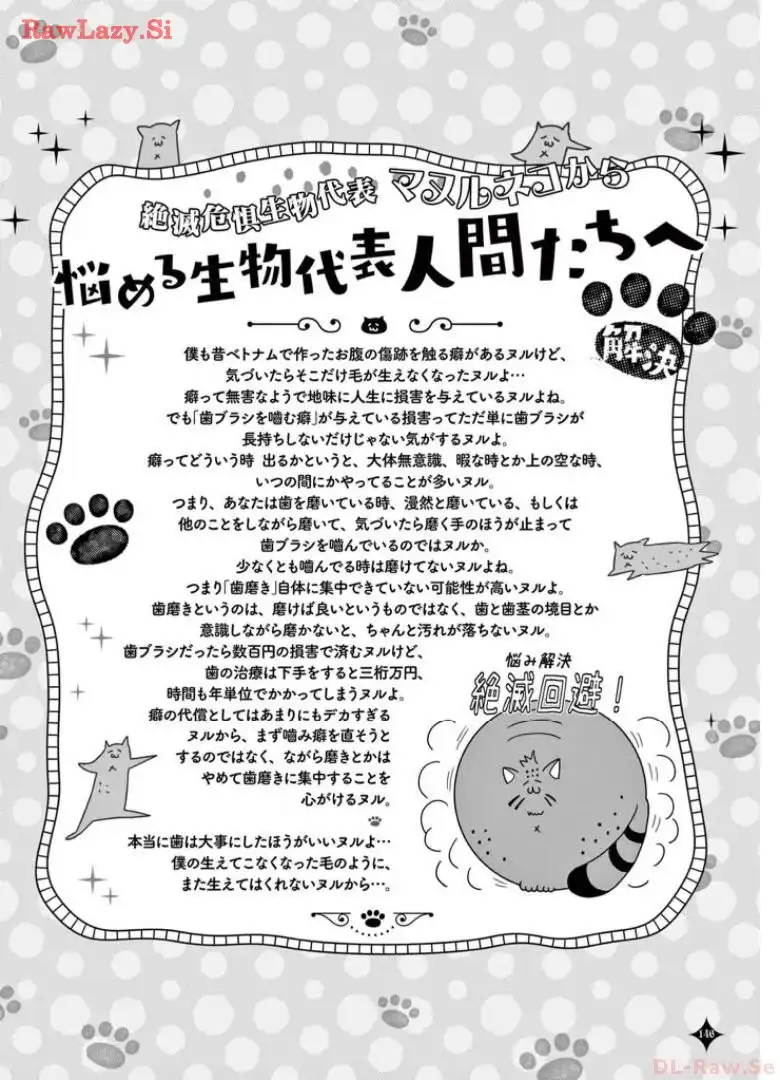 RawLazy.Si
絶滅危惧生物代表 マヌルネコから
悩める生物代表人間たちへ
解決
僕も昔ベトナムで作ったお腹の傷跡を触る癖があるヌルけど、
気づいたらそこだけ毛が生えなくなったヌルよ…
癖って無害なようで地味に人生に損害を与えているヌルよね。
でも「歯ブラシを嚙む癖」が与えている損害ってただ単に歯ブラシが
長持ちしないだけじゃない気がするヌルよ。
癖ってどういう時 出るかというと、大体無意識、暇な時とか上の空な時、
いつの間にかやってることが多いヌル。
つまり、あなたは歯を磨いている時、漫然と磨いている、もしくは
他のことをしながら磨いて、気づいたら磨く手のほうが止まって
歯ブラシを嚙んでいるのではヌルか。
少なくとも嚙んでる時は磨けてないヌルよね。
つまり「歯磨き」自体に集中できていない可能性が高いヌルよ。
歯磨きというのは、磨けば良いというものではなく、歯と歯茎の境目とか
意識しながら磨かないと、ちゃんと汚れが落ちないヌル。
歯ブラシだったら数百円の損害で済むヌルけど、
歯の治療は下手をすると三桁万円、
時間も年単位でかかってしまうヌルよ。
癖の代償としてはあまりにもデカすぎる
ヌルから、まず嚙み癖を直そうと
するのではなく、ながら磨きとかは
やめて歯磨きに集中することを
心がけるヌル。
本当に歯は大事にしたほうがいいヌルよ…
僕の生えてこなくなった毛のように、
また生えてはくれないヌルから…。
悩み解決
絶滅回避！
146
DL-Raw.Se